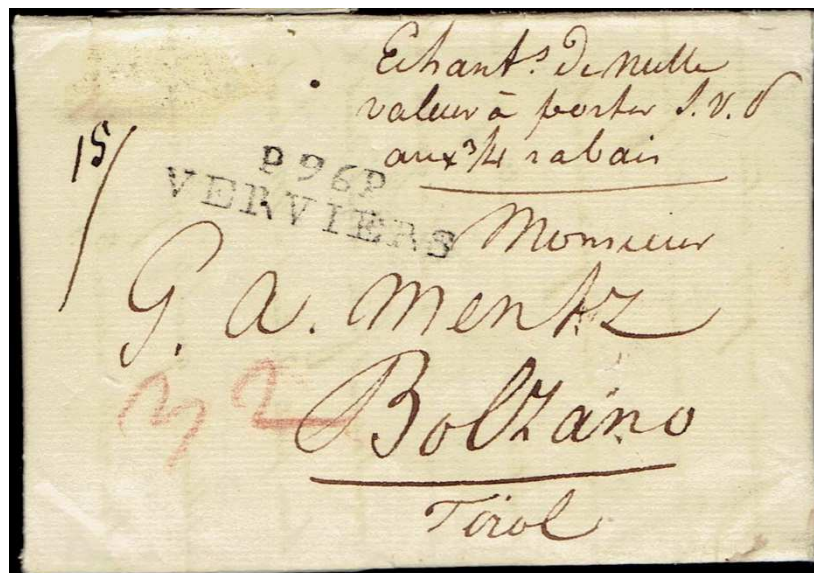 Echant.s de nulle
valeur à porter S. V. P
aux 3/4 rabais
15/
P96P
VERVIERS
Monsieur
G. A. Mentz
32
Bolzano
Tirol